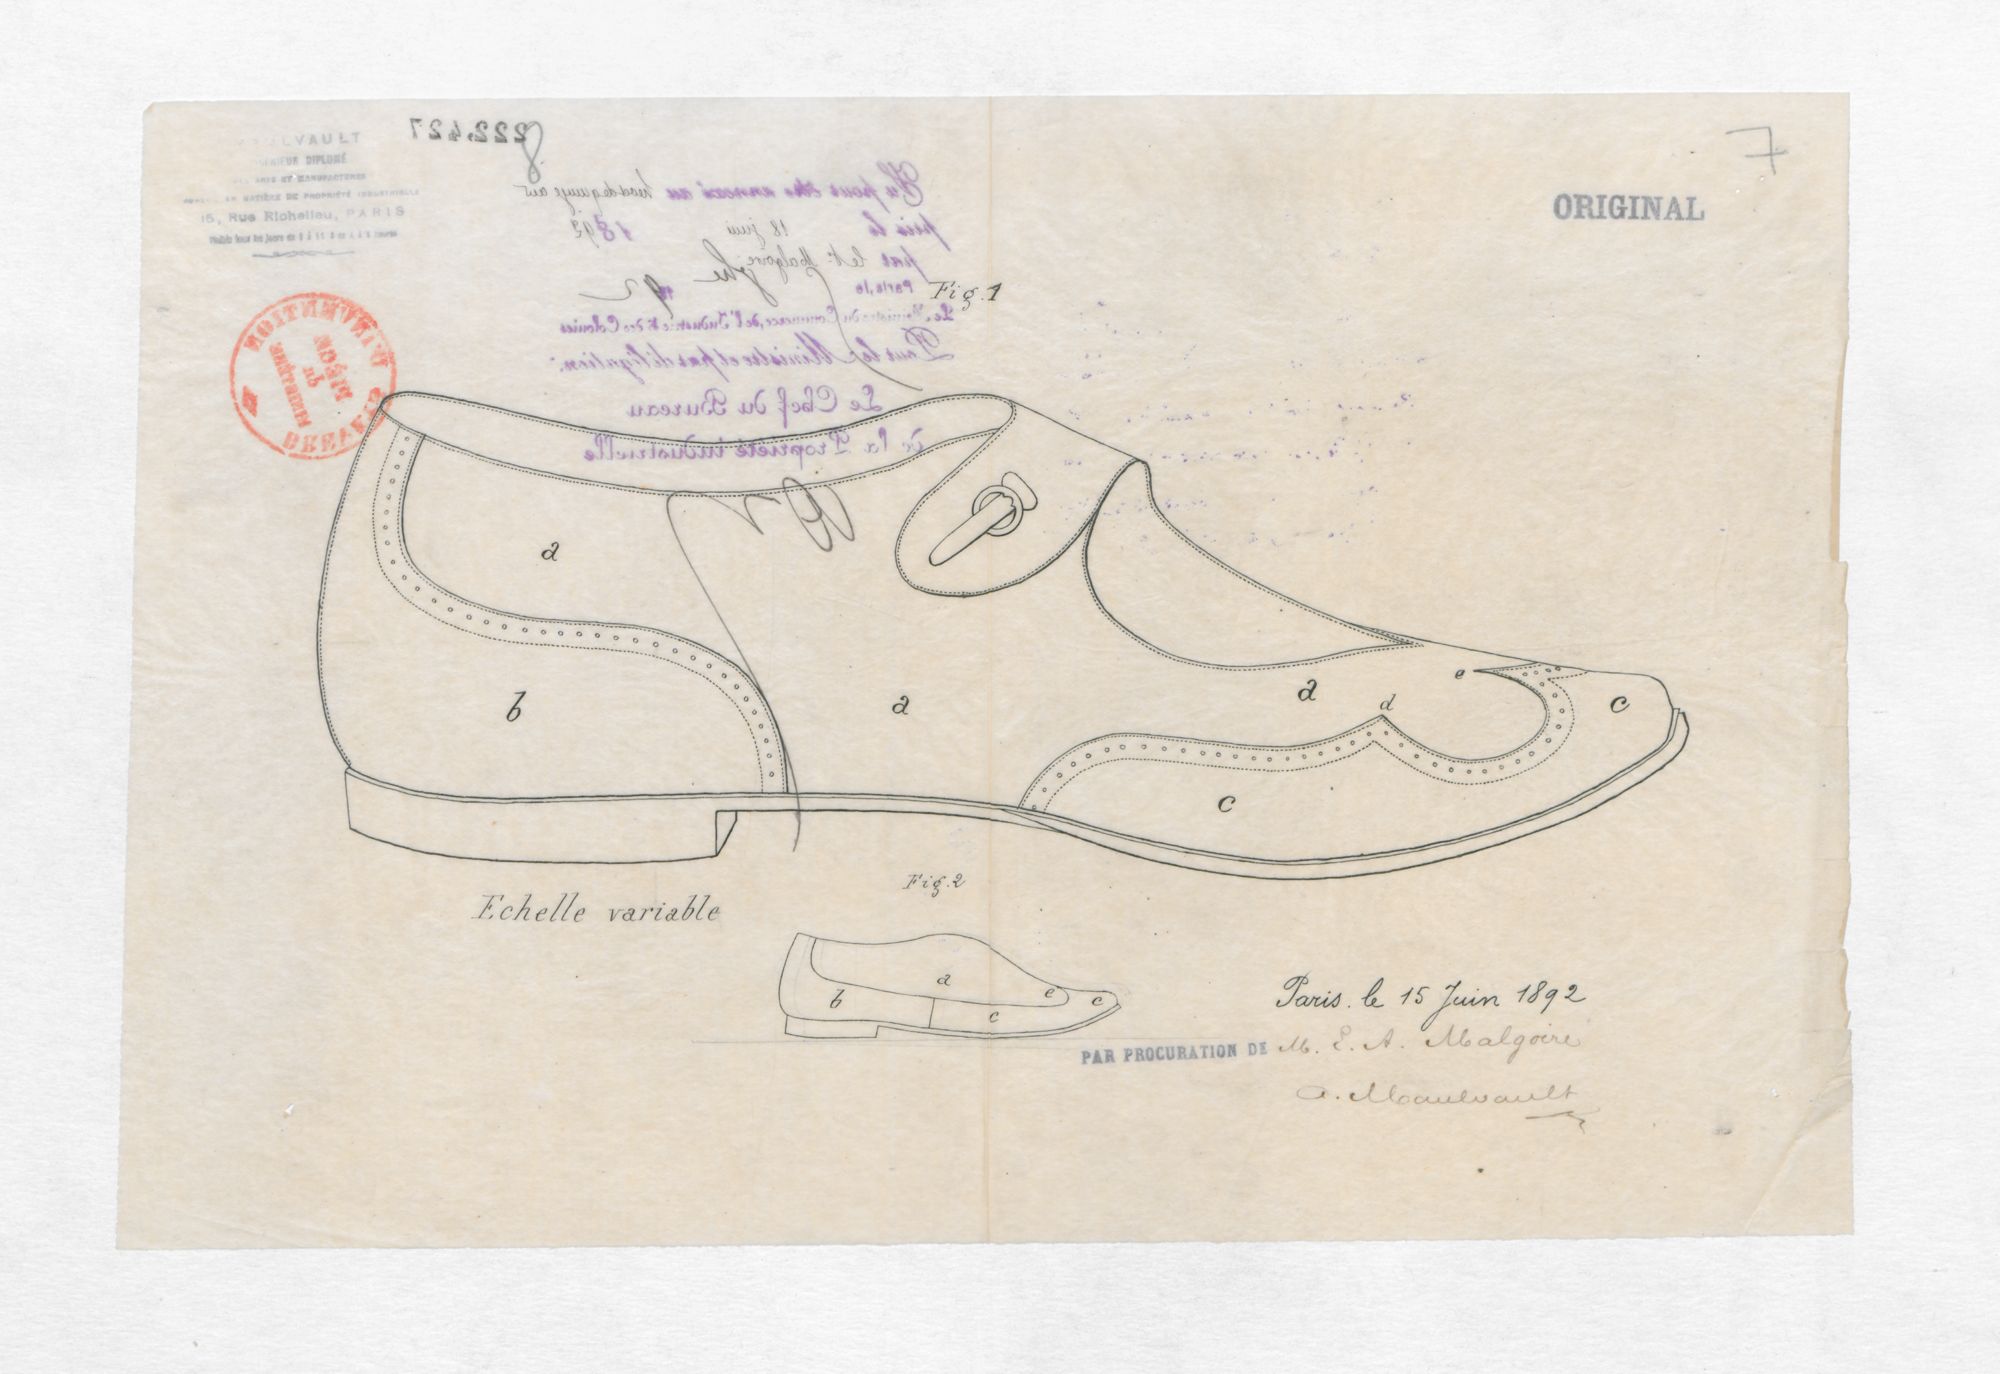 222.427
7
...ULVAULT
INGÉNIEUR DIPLOMÉ
DES ARTS ET MANUFACTURES
EN MATIÈRE DE PROPRIÉTÉ INDUSTRIELLE
15, Rue Richelieu, PARIS
ORIGINAL
Vu pour être annexé au brevet de quinze ans
pris le 18 juin 1892
par le Sr. Malgoire
Paris, le 92
Le Ministre du Commerce, de l'Industrie & des Colonies
Pour le Ministre et par délégation:
Le Chef du Bureau
de la Propriété industrielle
BREVETS D'INVENTION
Fig. 1
a
b
a
a
d
e
c
c
Echelle variable
Fig. 2
a
b
e
c
c
Paris. le 15 Juin 1892
PAR PROCURATION DE M. E. A. Malgoire
A. Maulvault